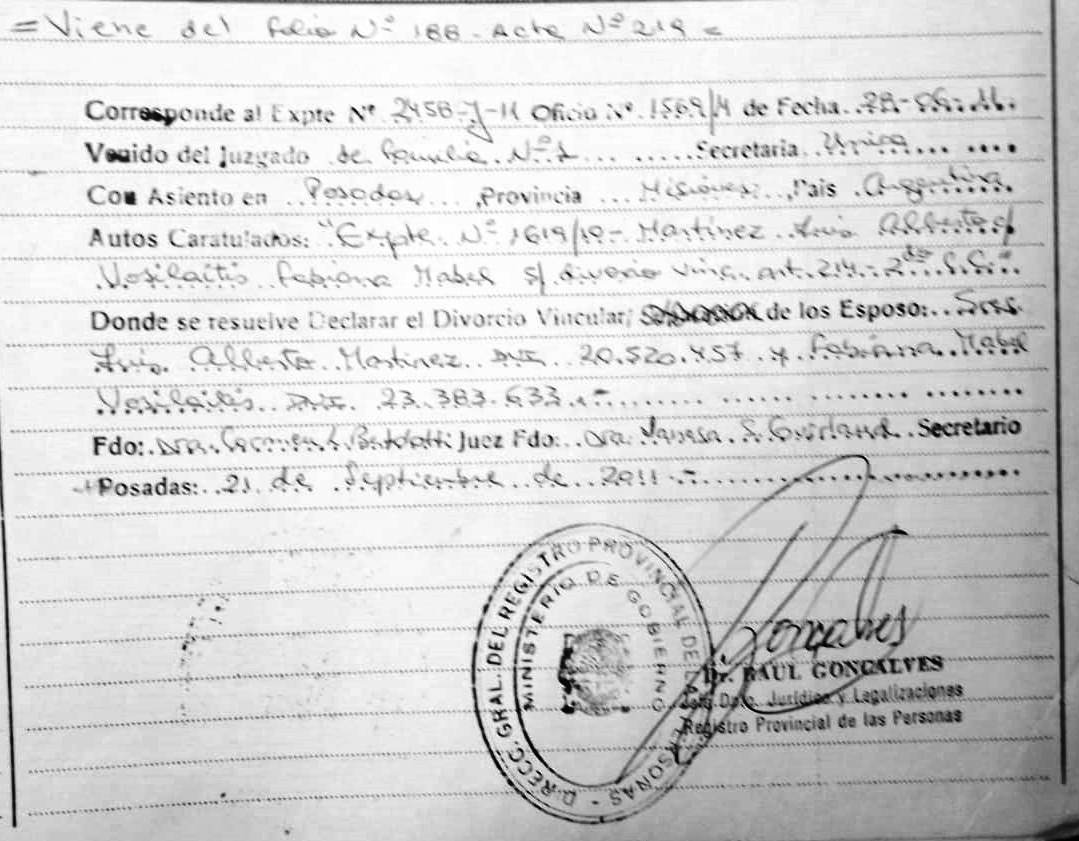 = Viene del folio Nº 188 - Acta Nº 219 =
Corresponde al Expte Nº 2458-J-11 Oficio Nº 1569/11 de Fecha 28-06-11.
Venido del Juzgado de Familia Nº 1 Secretaria Unica
Con Asiento en Posadas Provincia Misiones, Pais Argentina.
Autos Caratulados: "Expte. Nº 1619/10 - Martinez Luis Alberto c/
Vosilaitis Fabiana Mabel s/ divorcio vinc. art. 214 - 2do C.C."
Donde se resuelve Declarar el Divorcio Vincular, de los Esposo: Sres.
Luis Alberto Martinez DNI 20.520.457 y Fabiana Mabel
Vosilaitis DNI 23.383.633.-
Fdo: Dra. Carmen Juez Fdo: Dra. S. Secretario
Posadas: 21 de Septiembre de 2011.-
D.RECC. GRAL. DEL REGISTRO PROVINCIAL DE LAS PERSONAS -
MINISTERIO DE GOBIERNO
Goncalves
Dr. RAUL GONCALVES
Jefe Dpto. Jurídico y Legalizaciones
Registro Provincial de las Personas